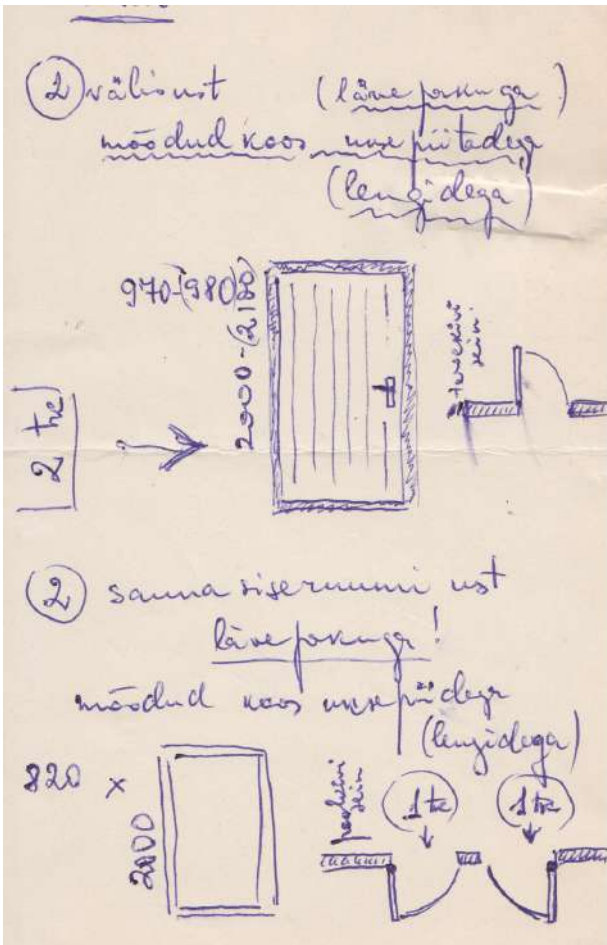 ② välisust (lävepakuga)
mõõdud koos uksepiitadega
(lengidega)
970-(980)
2000-(
tervekivi
sein.
2 tk
② sauna siseruumi ust
lävepakuga!
mõõdud koos uksepiidega
(lengidega)
820 x
2000
poolkivi
sein
1 tk
1 tk